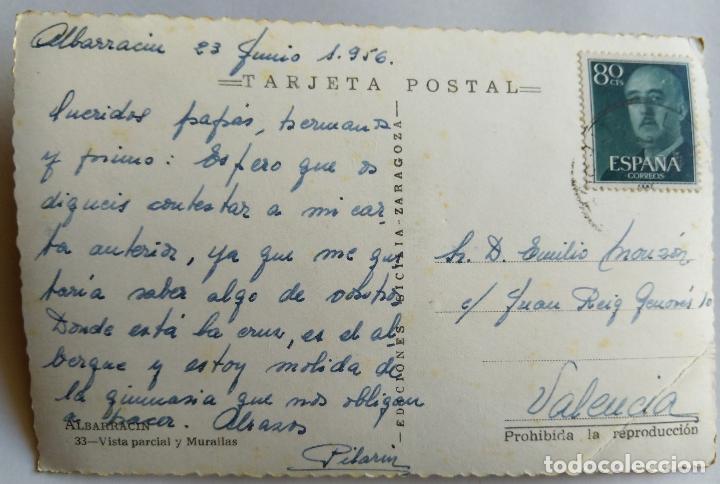 Albarracin 23 Junio 1.956.
TARJETA POSTAL
Queridos papás, hermana
y primo: Espero que os
digneis contestar a mi car
ta anterior, ya que me gus
taría saber algo de vosotros.
Donde está la cruz, es el al
bergue y estoy molida de
la gimnasia que nos obligan
a hacer. Abrazos
Pilarin
ALBARRACIN
33—Vista parcial y Murallas
EDICIONES SICILIA-ZARAGOZA
80 CTS
ESPAÑA
CORREOS
Sr. D. Emilio Monzón
c/ Juan Reig Genovés 10
Valencia
Prohibida la reproducción
todocoleccion.net